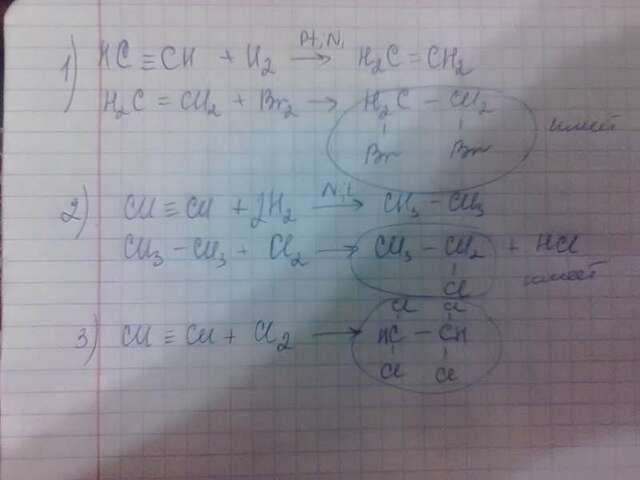 1) HC ≡ CH + H₂ —Pt, Ni→ H₂C = CH₂
H₂C = CH₂ + Br₂ → H₂C - CH₂
Br Br
имеет
2) CH ≡ CH + 2H₂ —Ni, t→ CH₃ - CH₃
CH₃ - CH₃ + Cl₂ → CH₃ - CH₂ + HCl
Cl
имеет
Cl Cl
3) CH ≡ CH + Cl₂ → HC - CH
Cl Cl